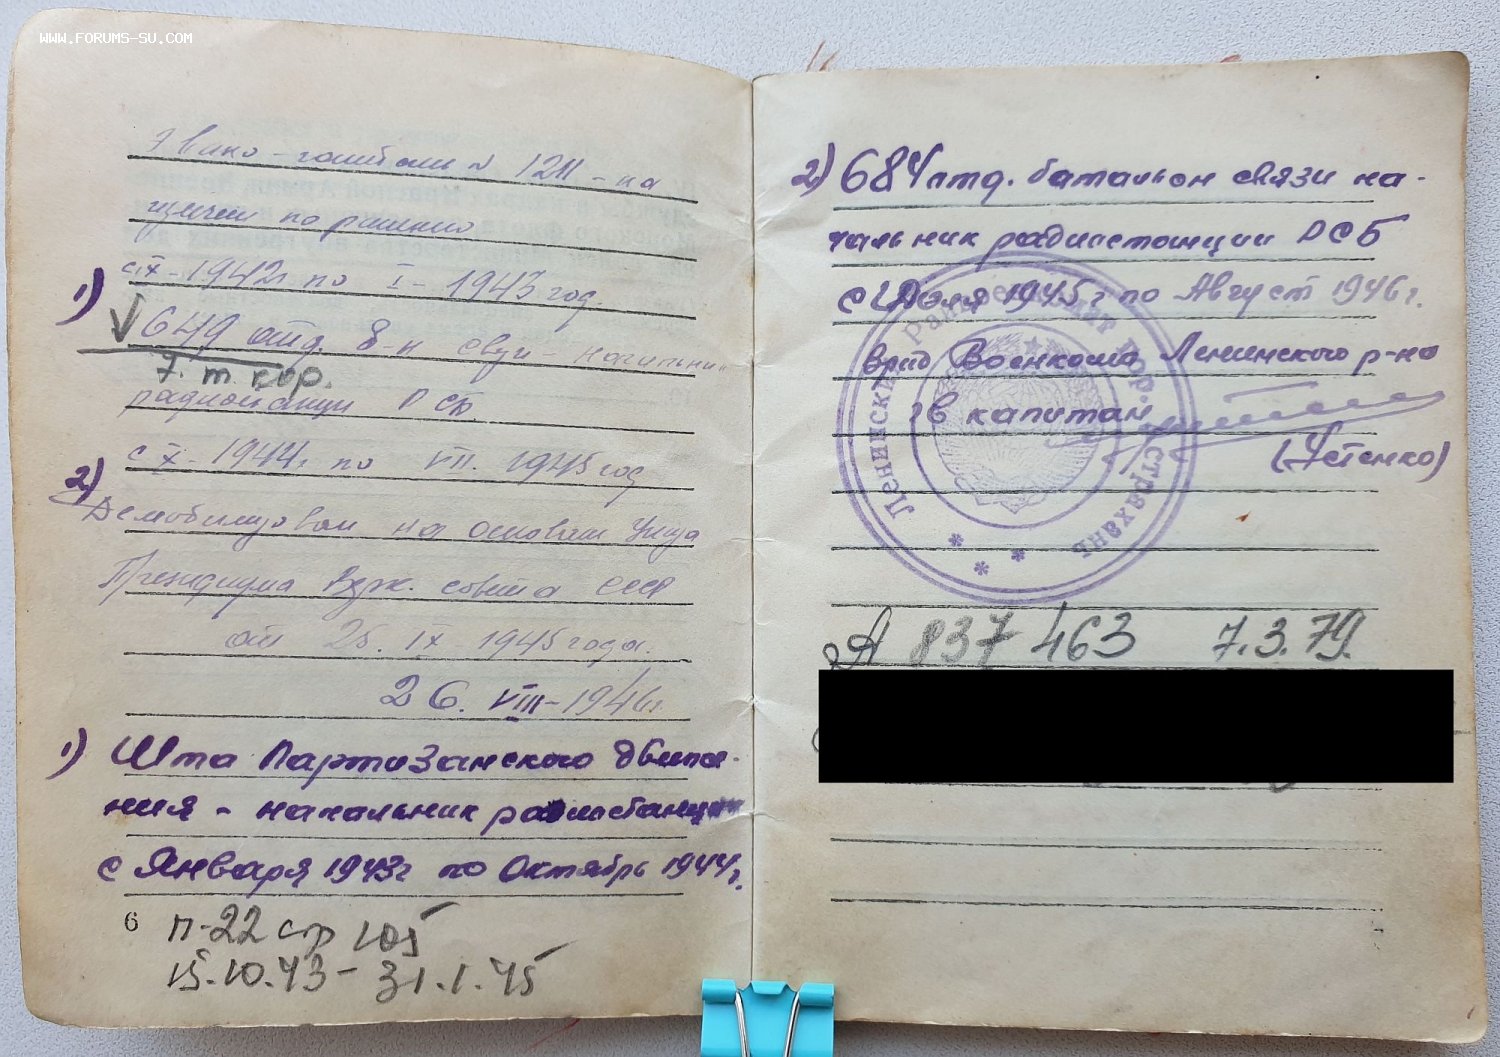 WWW.FORUMS-SU.COM
Эвако-госпиталь № 1211 – на
по ранению
с IX – 1942 г. по I – 1943 год.
1)
649 отд. б-н связи – начальник
7. т. кор.
радиостанции РСБ
с X – 1944 г. по VII. 1945 год
2)
Демобилизован на основании Указа
Президиума Верх. совета СССР
от 25. IX – 1945 года.
26. VIII – 1946 г.
1) Шта Партизанского движе-
ния – начальник радиостанции
с Января 1943 г по Октябрь 1944 г.
6
п-22 стр 105
15.10.43 – 31.1.45
2) 684 отд. батальон связи на-
чальник радиостанции РСБ
с Июля 1945 г по Август 1946 г.
Врид Военкома Ленинского р-на
гв капитан
Ленинский Райвоенкомат гор. Астрахань
А 837 463 7.3.79.